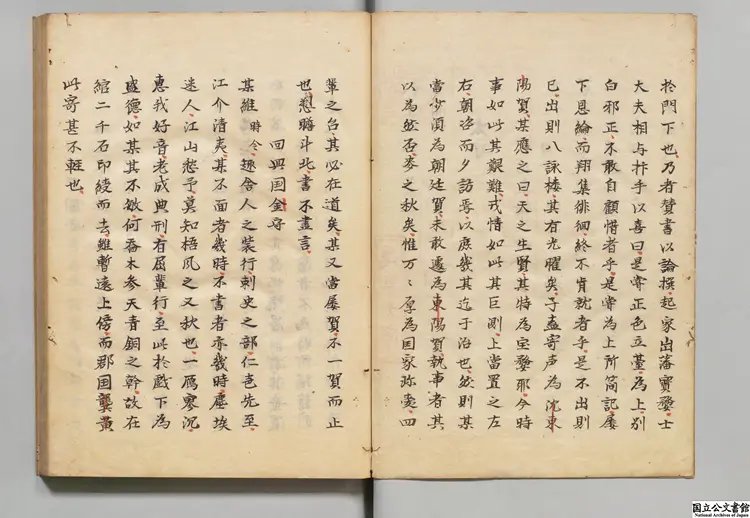 於門下也乃者贊書以論撰起家出藩寶婺士
大夫相与抃手以喜曰是嘗正色立䑓為上別
白邪正不敢自顧惜者乎是嘗為上所簡記屢
下恩綸而翔集徘徊終不肯就者乎是不出則
已出則八詠棲其有光耀矣子盍寄声為沈東
陽賀某應之曰天之生賢其特為宝婺耶今時
事如此其艱難戎情如此其巨測上當置之左
右朝咨而夕訪焉以庶幾其迄于治也然則某
當少須為朝廷賀未敢遽為東陽賀執事者其
以為然否麥之秋矣惟万〻厚為国家弥愛四
輩之台其必在道矣某又當屢賀不一賀而止
也愁睇斗北書不盡言
回興国金守
某維時令趣啓人之装行刺史之部仁言先至
江介清夷某不面者幾時不書者亦幾時塵埃
迷人江山愁予莫知梧風之又秋也一鴈寥沉
惠我好音老成典刑有屈輩行至此於戲下為
盛德如某其不敏何喬木参天青銅之幹故在
綰二千石印綬而去雖暫遠上傍而郡国龔黄
此寄甚不軽也
国立公文書館
National Archives of Japan